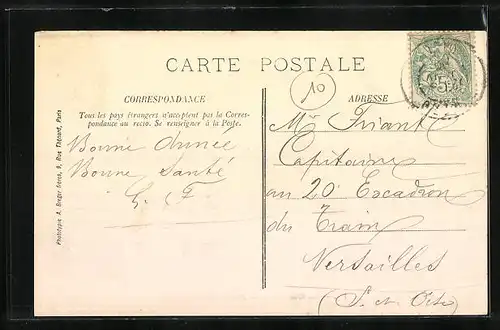 CARTE POSTALE
10
CORRESPONDANCE
Tous les pays étrangers n'acceptent pas la Corres-
pondance au recto. Se renseigner à la Poste.
Bonne Année
Bonne Santé
ADRESSE
Mr Friant
Capitaine
au 20e Escadron
du Train
Versailles
(S. et Oise)
Phototypie A. Breger frères, 9, Rue Thénard, Paris